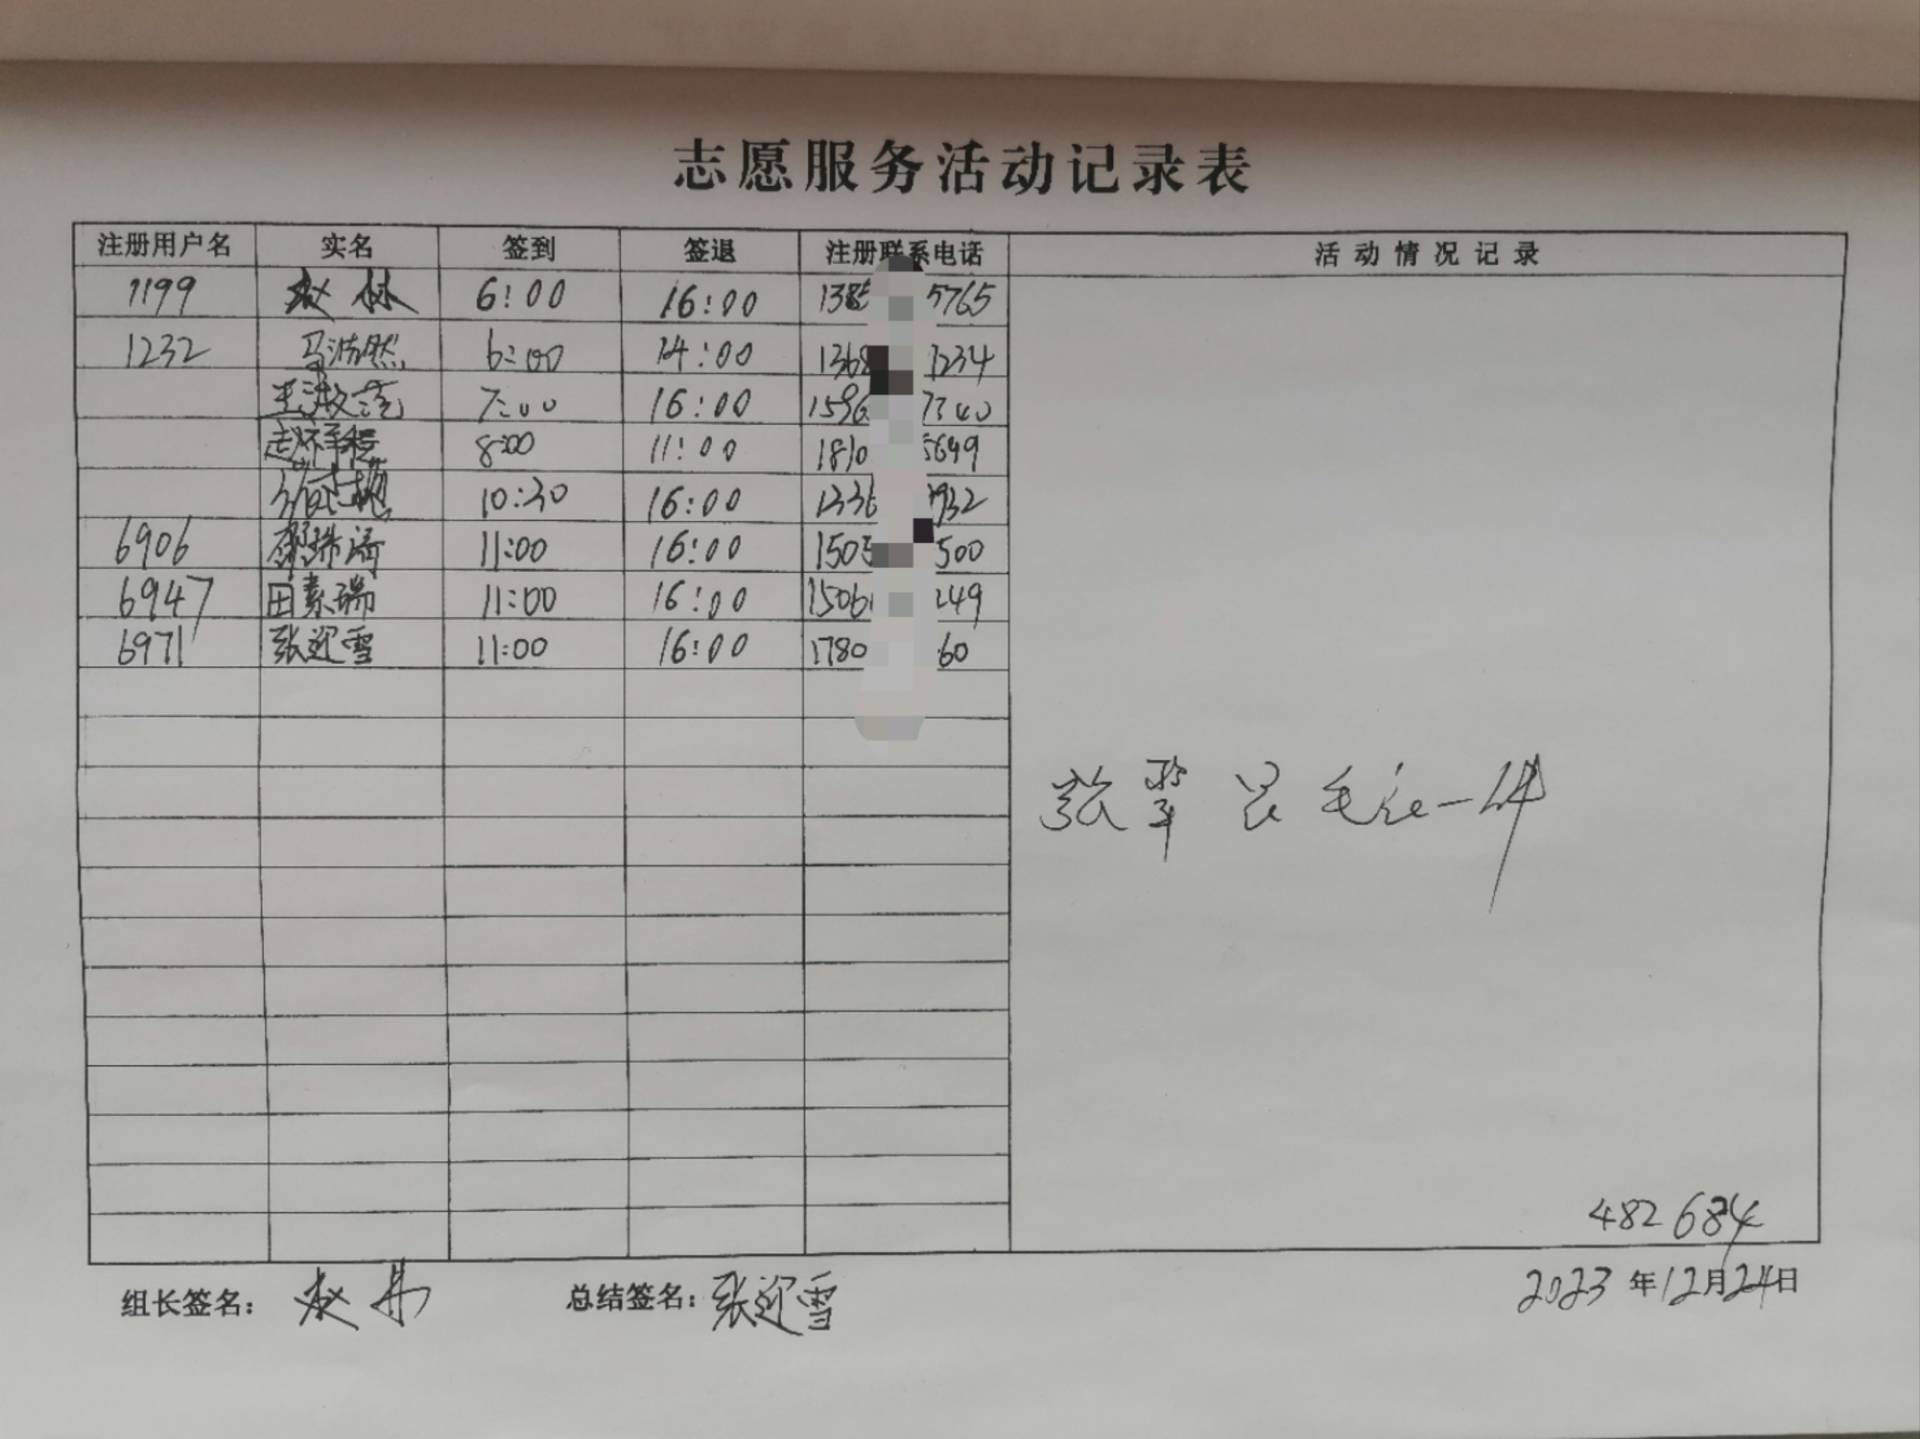 志愿服务活动记录表
注册用户名 实名 签到 签退 注册联系电话 活动情况记录
1199 赵林 6:00 16:00 1385 5765
1232 马浩然 6:00 14:00 1368 1234
王淑莲 7:00 16:00 1596 7340
赵祥程 8:00 11:00 1810 5699
10:30 16:00 1336 1932
6906 11:00 16:00 1505 500
6947 田素瑞 11:00 16:00 1506 249
6971 张迎雪 11:00 16:00 1780 60
张翠 毛衣一件
482 684
2023年12月24日
组长签名： 赵 总结签名：张迎雪